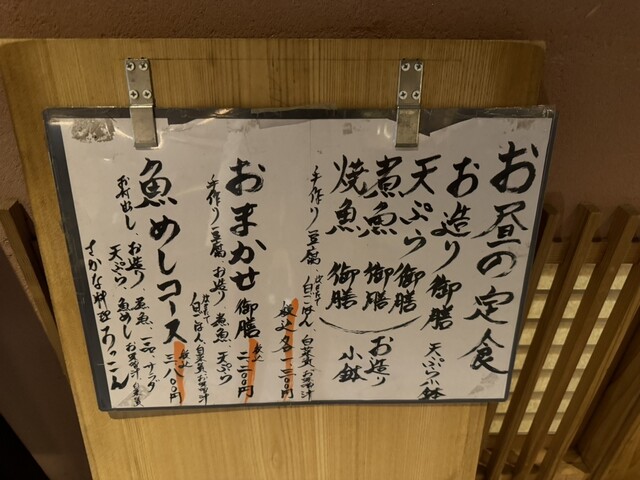 お昼の定食
お造り御膳 天ぷら小鉢
天ぷら御膳
煮魚御膳 お造り
焼魚御膳 小鉢
手作り豆腐 白ごはん 白菜漬 お味噌汁
税込各一、三〇〇円
おまかせ御膳 税込二、二〇〇円
手作り豆腐 お造り 煮魚 天ぷら
白ごはん 白菜漬 お味噌汁
魚めしコース 税込三、八〇〇円
お付出し お造り、煮魚、一品、サラダ
天ぷら、魚めし お味噌汁
さかな料理